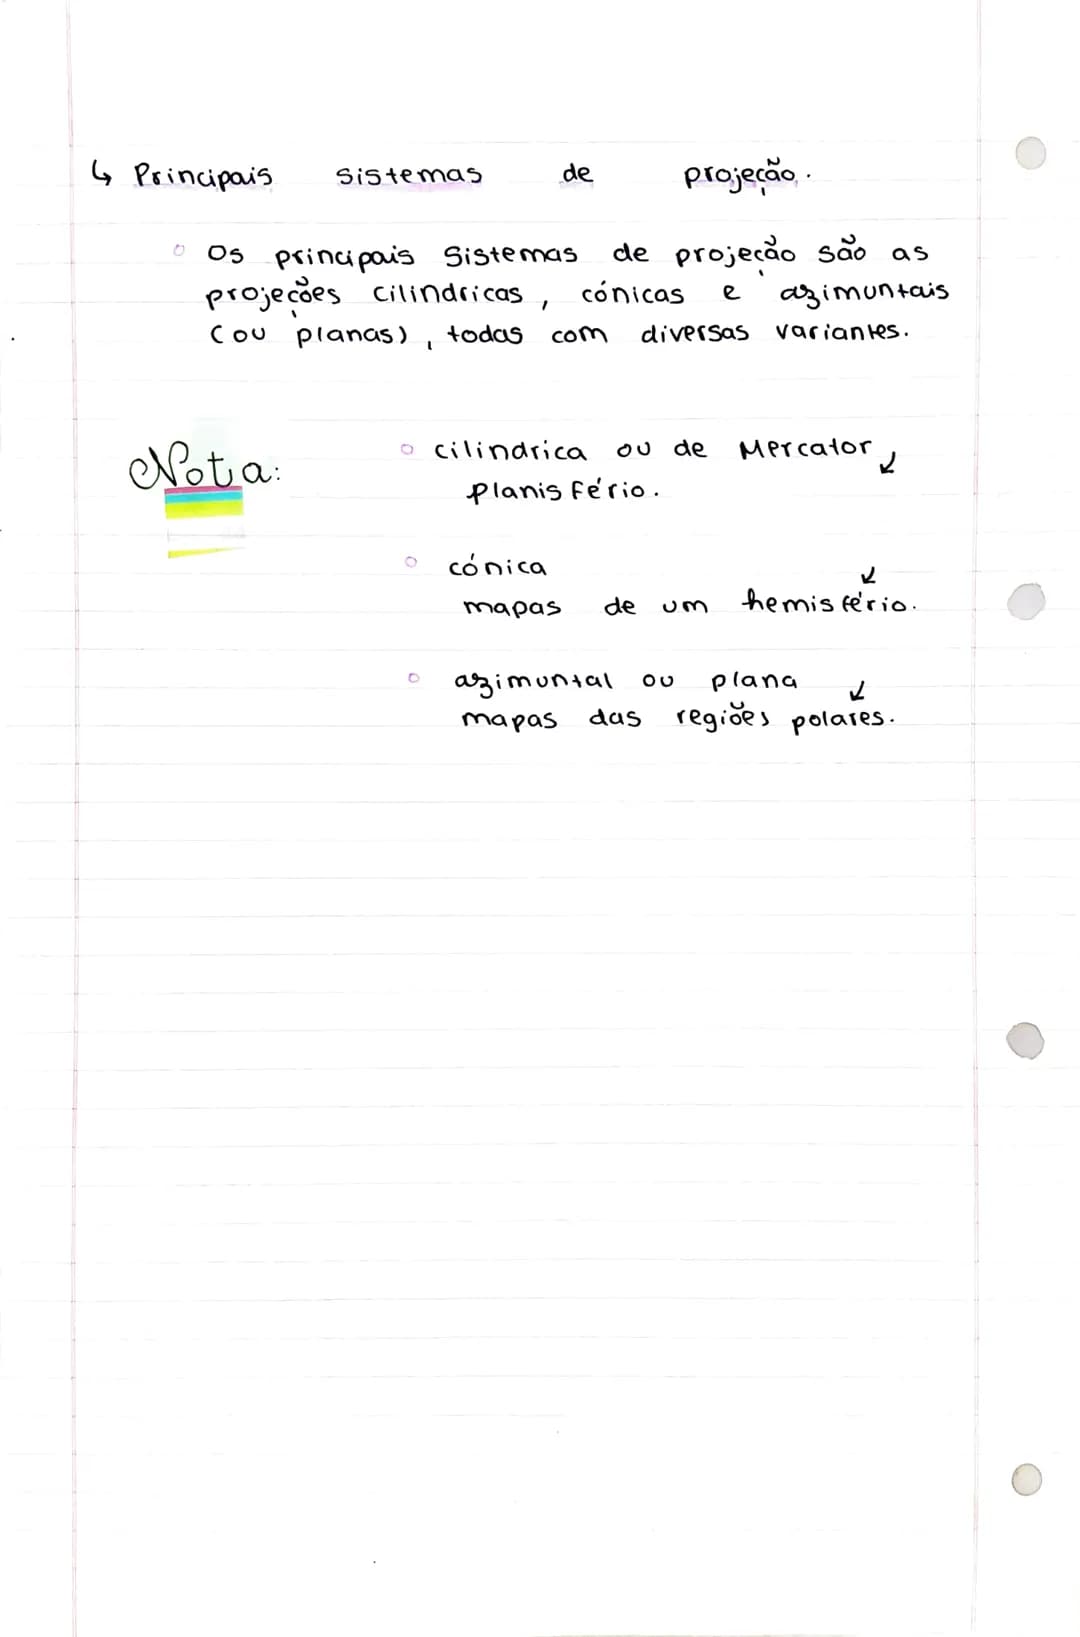 ↳ Principais sistemas de projeção.
◦ Os principais Sistemas de projeção são as
projeções cilindricas, cónicas e azimuntais
(ou planas), todas com diversas variantes.
Nota:
◦ cilindrica ou de Mercator ↙
planisfério.
◦ cónica ↙
mapas de um hemisfério.
◦ azimuntal ou plana ↙
mapas das regiões polares.